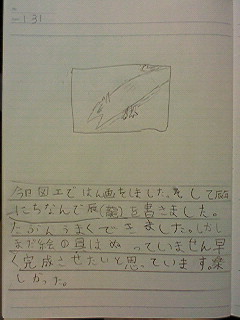 1.31
今日図工ではん画をしました。そして辰年
にちなんで辰(龍)を書きました。
たぶんうまくできました。しかし
まだ絵の具はぬっていません早
く完成させたいと思っています。楽
しかった。